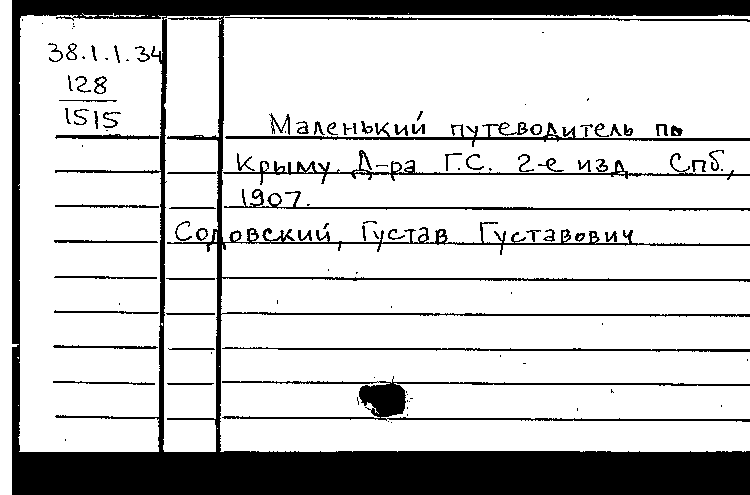 38.1.1.34
128
1515
Маленький путеводитель по
Крыму. Д-ра Г.С. 2-е изд Спб.,
1907.
Содовский, Густав Густавович